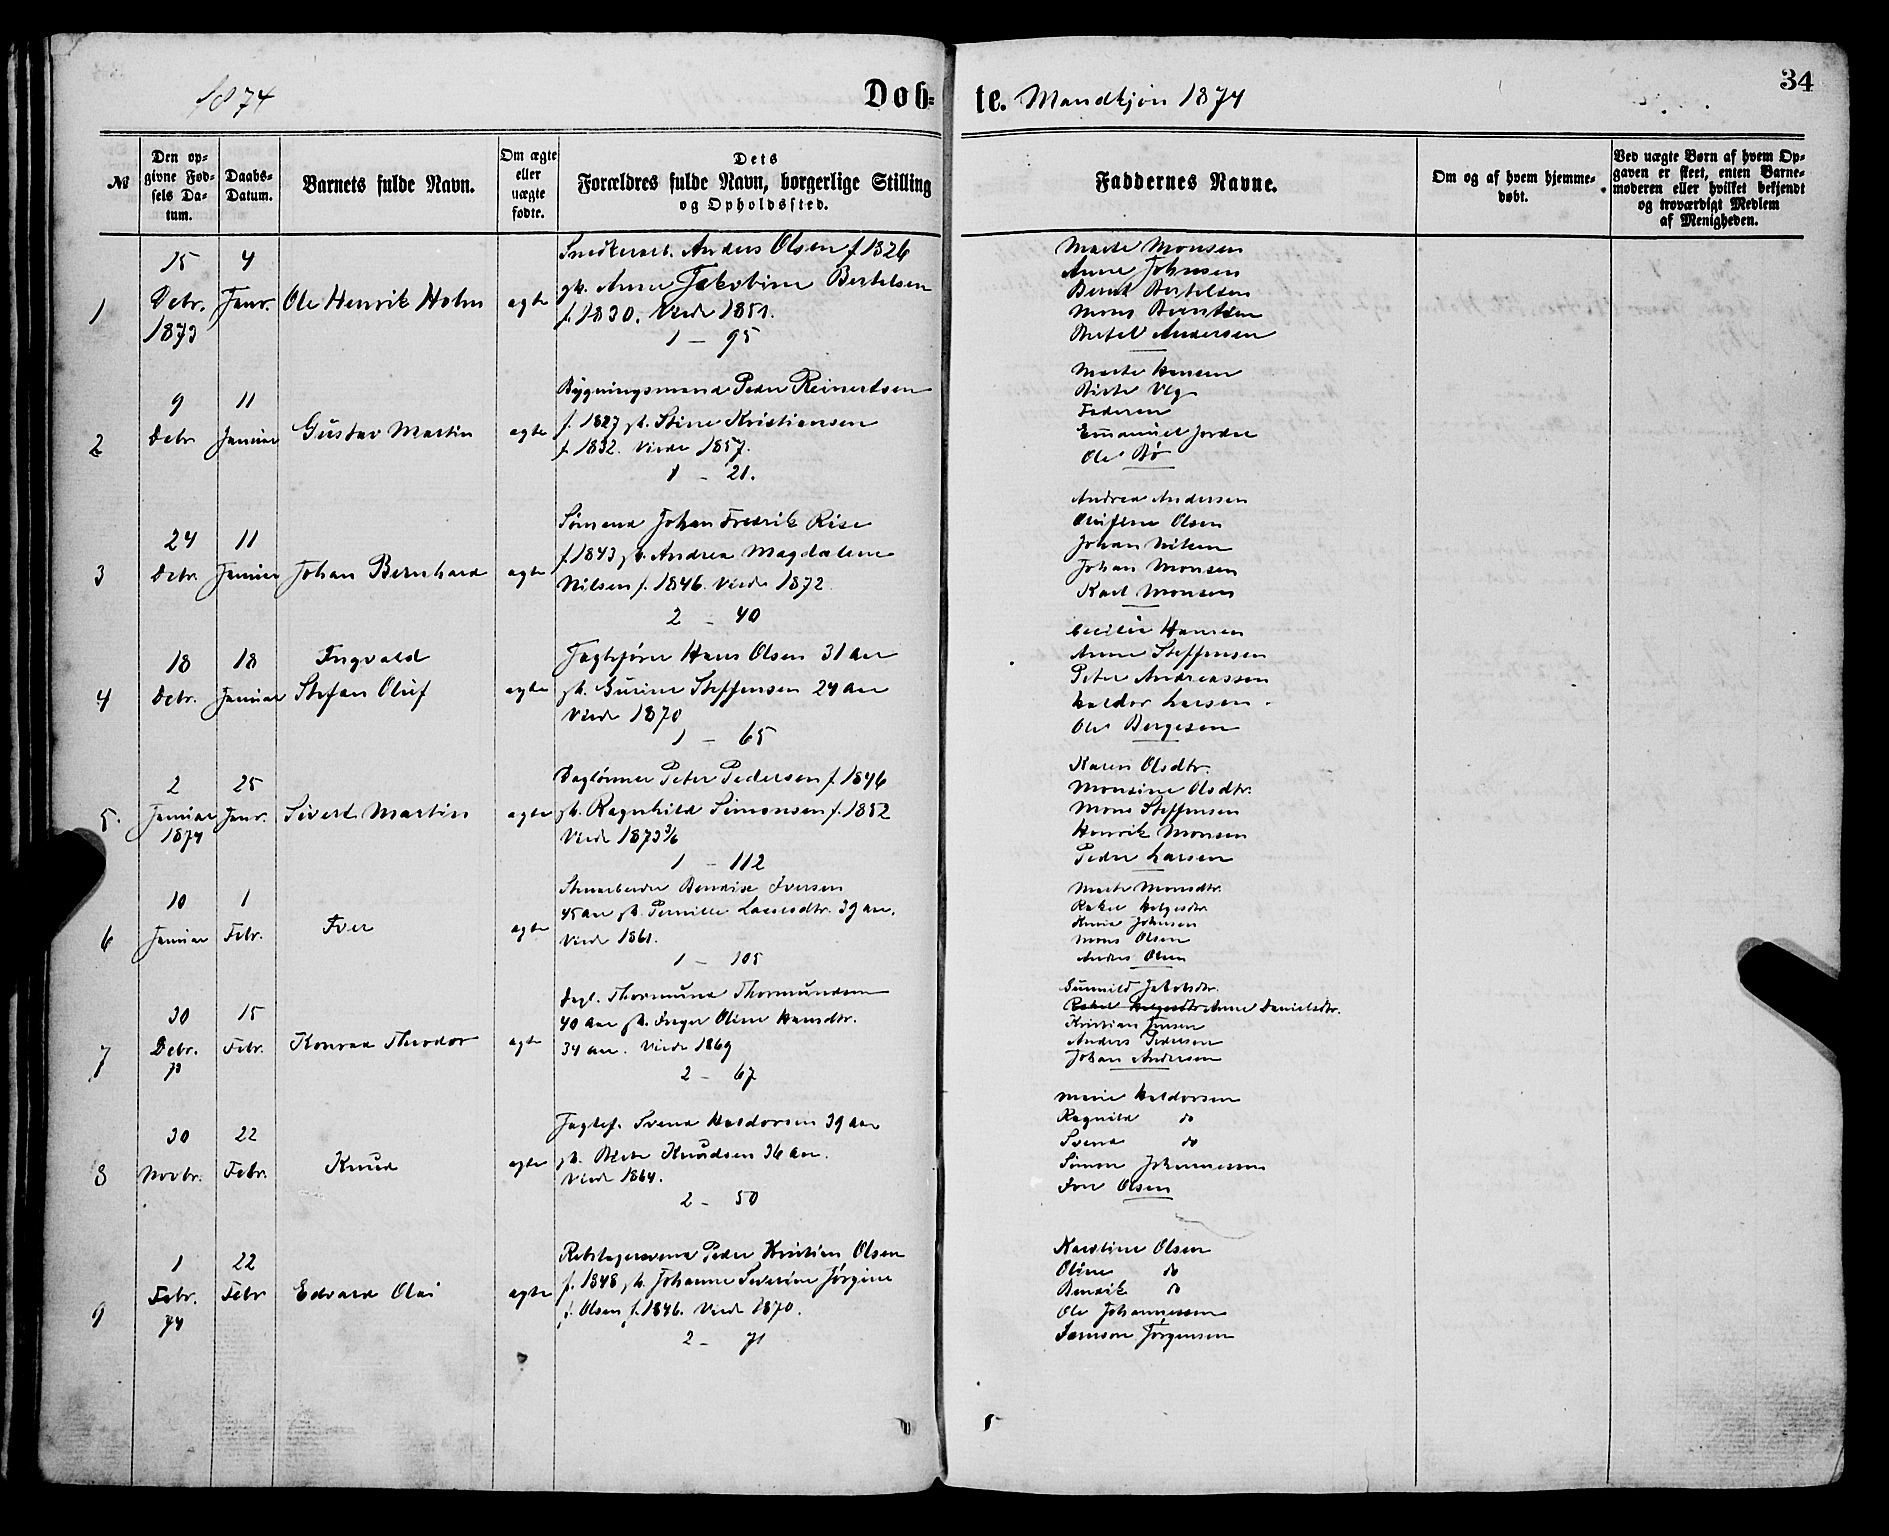 1874
Døb-
te. Mandkjøn 1874
34
№
Den op-
givne Fød-
sels Da-
tum.
Daabs-
Datum.
Barnets fulde Navn.
Om ægte
eller
uægte
fødte.
Dets
Forældres fulde Navn, borgerlige Stilling
og Opholdssted.
Faddernes Navne.
Om og af hvem hjemme-
døbt.
Ved uægte Børn af hvem Op-
gaven er skeet, enten Barne-
moderen eller hvilket bekjendt
og troværdigt Medlem
af Menigheden.
1
15
Debr.
1873
4
Janr.
Ole Henrik Holm
ægte
Anders Olsen f. 1826
Anne Jakobine Bertelsen
f. 1830. Viede 1851.
1 - 95
Marte Monsen
Anne Johnsen
Bernt Bertelsen
Mons
Bertel Andersen
2
9
Debr.
11
Januar
Gustav Martin
ægte
Bygningsmand Peder Reinertsen
f. 1827 Stine Kristiansen
f. 1832. Viede 1857.
1 - 21.
Marte Hansen
Birte
Faderen
Emanuel
Ole Bø
3
24
Debr.
11
Januar
Johan Bernhard
ægte
Sømand Johan Fredrik Rise
f. 1843 Andrea Magdalene
Nilsen f. 1846. Viede 1872
2 - 40
Andrea Andersen
Olsen
Johan Nilsen
Johan Monsen
Karl Monsen
4
18
Debr.
18
Januar
Ingvald
Stefan Oluf
ægte
Jagtefører Hans Olsen 31 Aar
Gurine Steffensen 24 Aar
Viede 1870
1 - 65
Cecilie Hansen
Anne Steffensen
Peter Andreassen
Haldor Larsen
Ole Bergesen
5.
2
Januar
1874
25
Janr.
Sivert Martin
ægte
Daglønner Peter Pedersen f. 1846
Ragnhild Simonsen f. 1852
Viede 1873 3/6
1 - 112
Karen Olsdtr.
Monsine Olsdtr.
Mons Steffensen
Henrik Monsen
Peder Larsen
6
10
Januar
1
Febr.
Iver
ægte
Stenarbeider Bendix Iversen
45 Aar Pernille Larsdtr. 39 Aar.
Viede 1861.
1 - 105
Marte Monsdtr.
Rakel Helgesdtr.
Johnsen
Mons Olsen
Anders Olsen
7
30
Debr.
73
15
Febr.
Konrad Theodor
ægte
Dagl. Thormund Thormundsen
40 Aar Inger Oline Hansdtr.
34 Aar. Viede 1869
2 - 67
Gunnild Jakobsdtr.
Rakel Helgesdtr Anne Danielsdtr.
Kristian Jensen
Anders Pedersen
Johan Andersen
8
30
Novbr.
22
Febr.
Knud
ægte
Jagtef. Svend Haldorsen 39 Aar
Berte Knudsen 36 Aar.
Viede 1864.
2 - 50
Marie Haldorsen
Ragnild do
Svend do
Simon Johannessen
Iver Olsen
9
1
Febr.
74
22
Febr
Edvard Olai
ægte
Rebslagersvend Peder Kristian Olsen
f. 1848 Johanne Severine Jørgine
Olsen f. 1846. Viede 1870.
2 - 71
Karoline Olsen
Oline do
Bendik do
Ole Johannessen
Samson Jørgensen